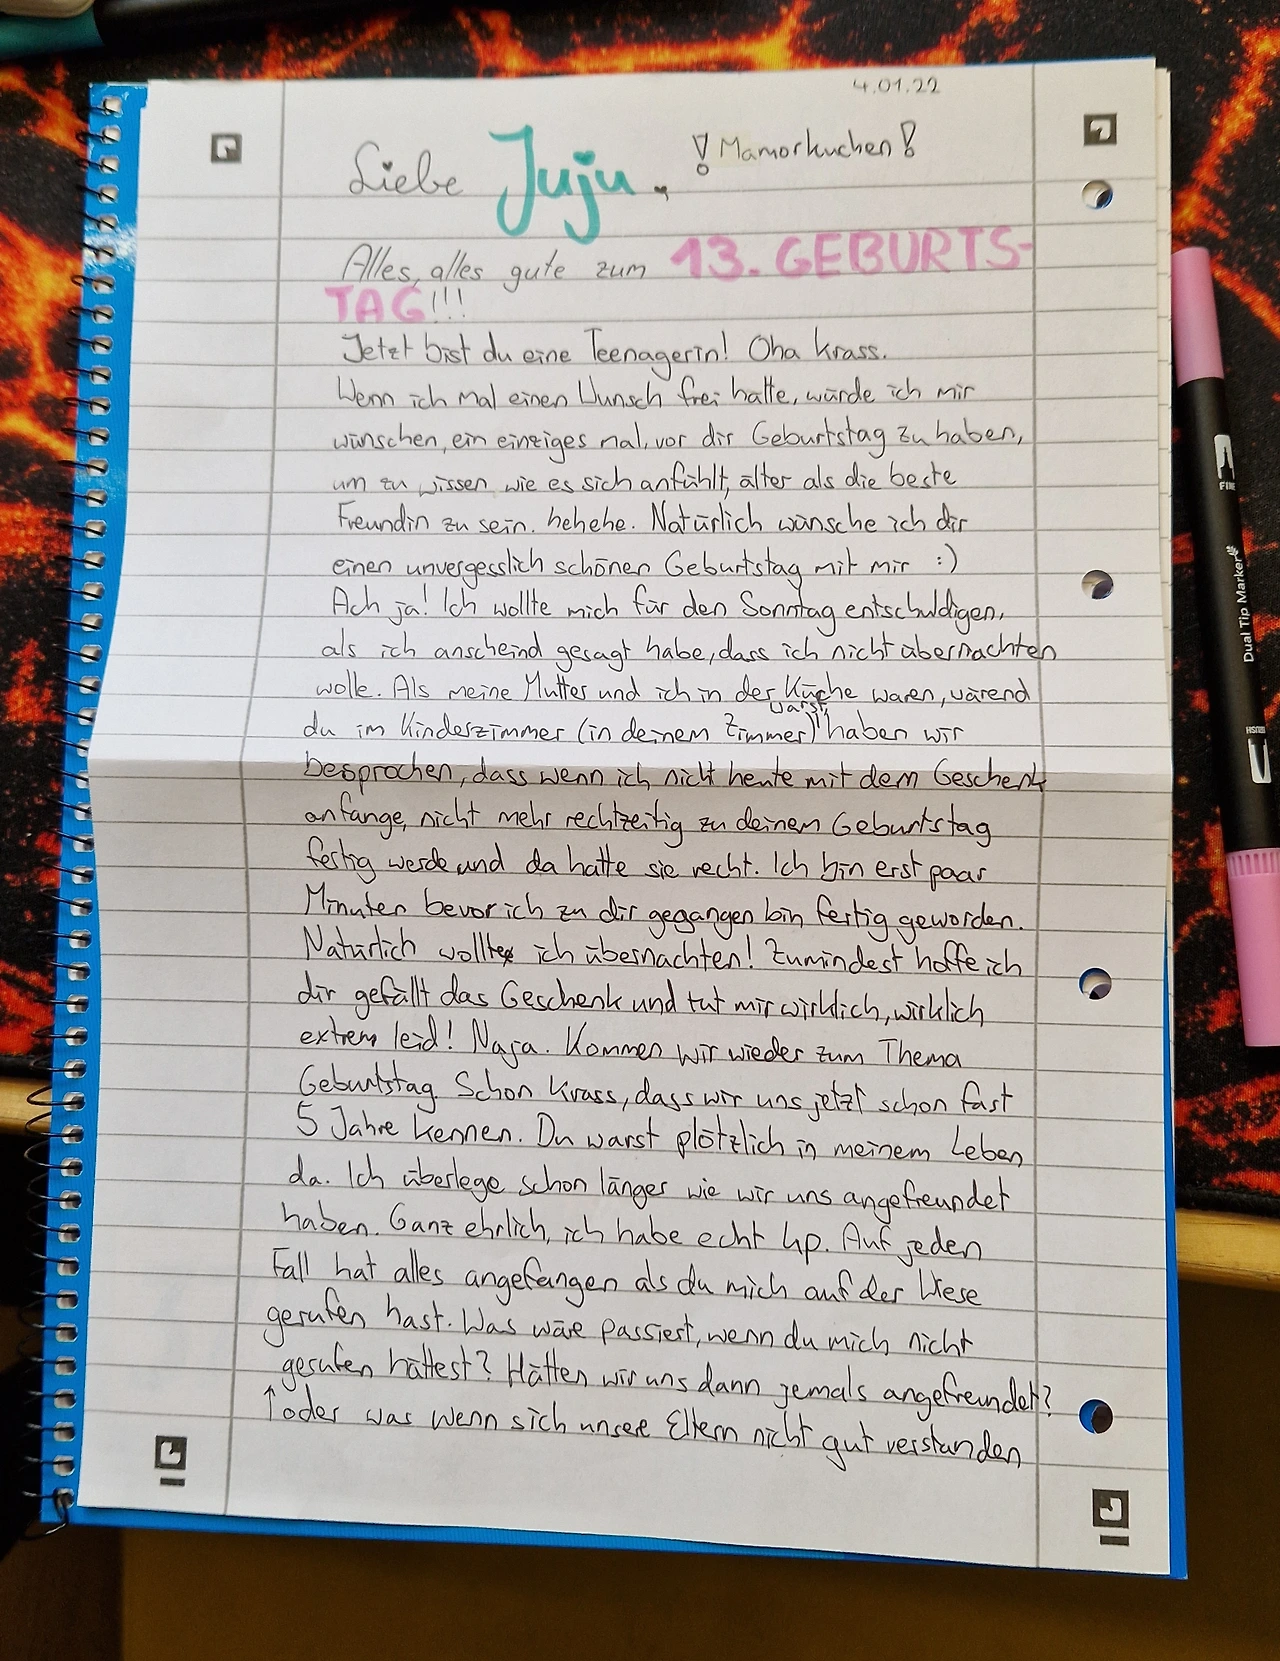 4.01.22
Liebe Juju, ! Mamorkuchen!
Alles, alles gute zum 13. GEBURTS-
TAG!!!
Jetzt bist du eine Teenagerin! Oha krass.
Wenn ich mal einen Wunsch frei hätte, würde ich mir
wünschen, ein einziges mal, vor dir Geburtstag zu haben,
um zu wissen wie es sich anfühlt, älter als die beste
Freundin zu sein. hehehe. Natürlich wünsche ich dir
einen unvergesslich schönen Geburtstag mit mir :)
Ach ja! Ich wollte mich für den Sonntag entschuldigen,
als ich anscheind gesagt habe, dass ich nicht übernachten
wolle. Als meine Mutter und ich in der Küche waren, wärend
du im Kinderzimmer (in deinem Zimmer) warst, haben wir
besprochen, dass wenn ich nicht heute mit dem Geschenk
anfange, nicht mehr rechtzeitig zu deinem Geburtstag
fertig werde und da hatte sie recht. Ich bin erst paar
Minuten bevor ich zu dir gegangen bin fertig geworden.
Natürlich wollte ich übernachten! Zumindest hoffe ich
dir gefällt das Geschenk und tut mir wirklich, wirklich
extrem leid! Naja. Kommen wir wieder zum Thema
Geburtstag. Schon krass, dass wir uns jetzt schon fast
5 Jahre kennen. Du warst plötzlich in meinem Leben
da. Ich überlege schon länger wie wir uns angefreundet
haben. Ganz ehrlich, ich habe echt kp. Auf jeden
Fall hat alles angefangen als du mich auf der Wiese
gerufen hast. Was wäre passiert, wenn du mich nicht
gerufen hättest? Hätten wir uns dann jemals angefreundet?
↑ oder was wenn sich unsere Eltern nicht gut verstanden
FINE
Dual Tip Marker
BRUSH